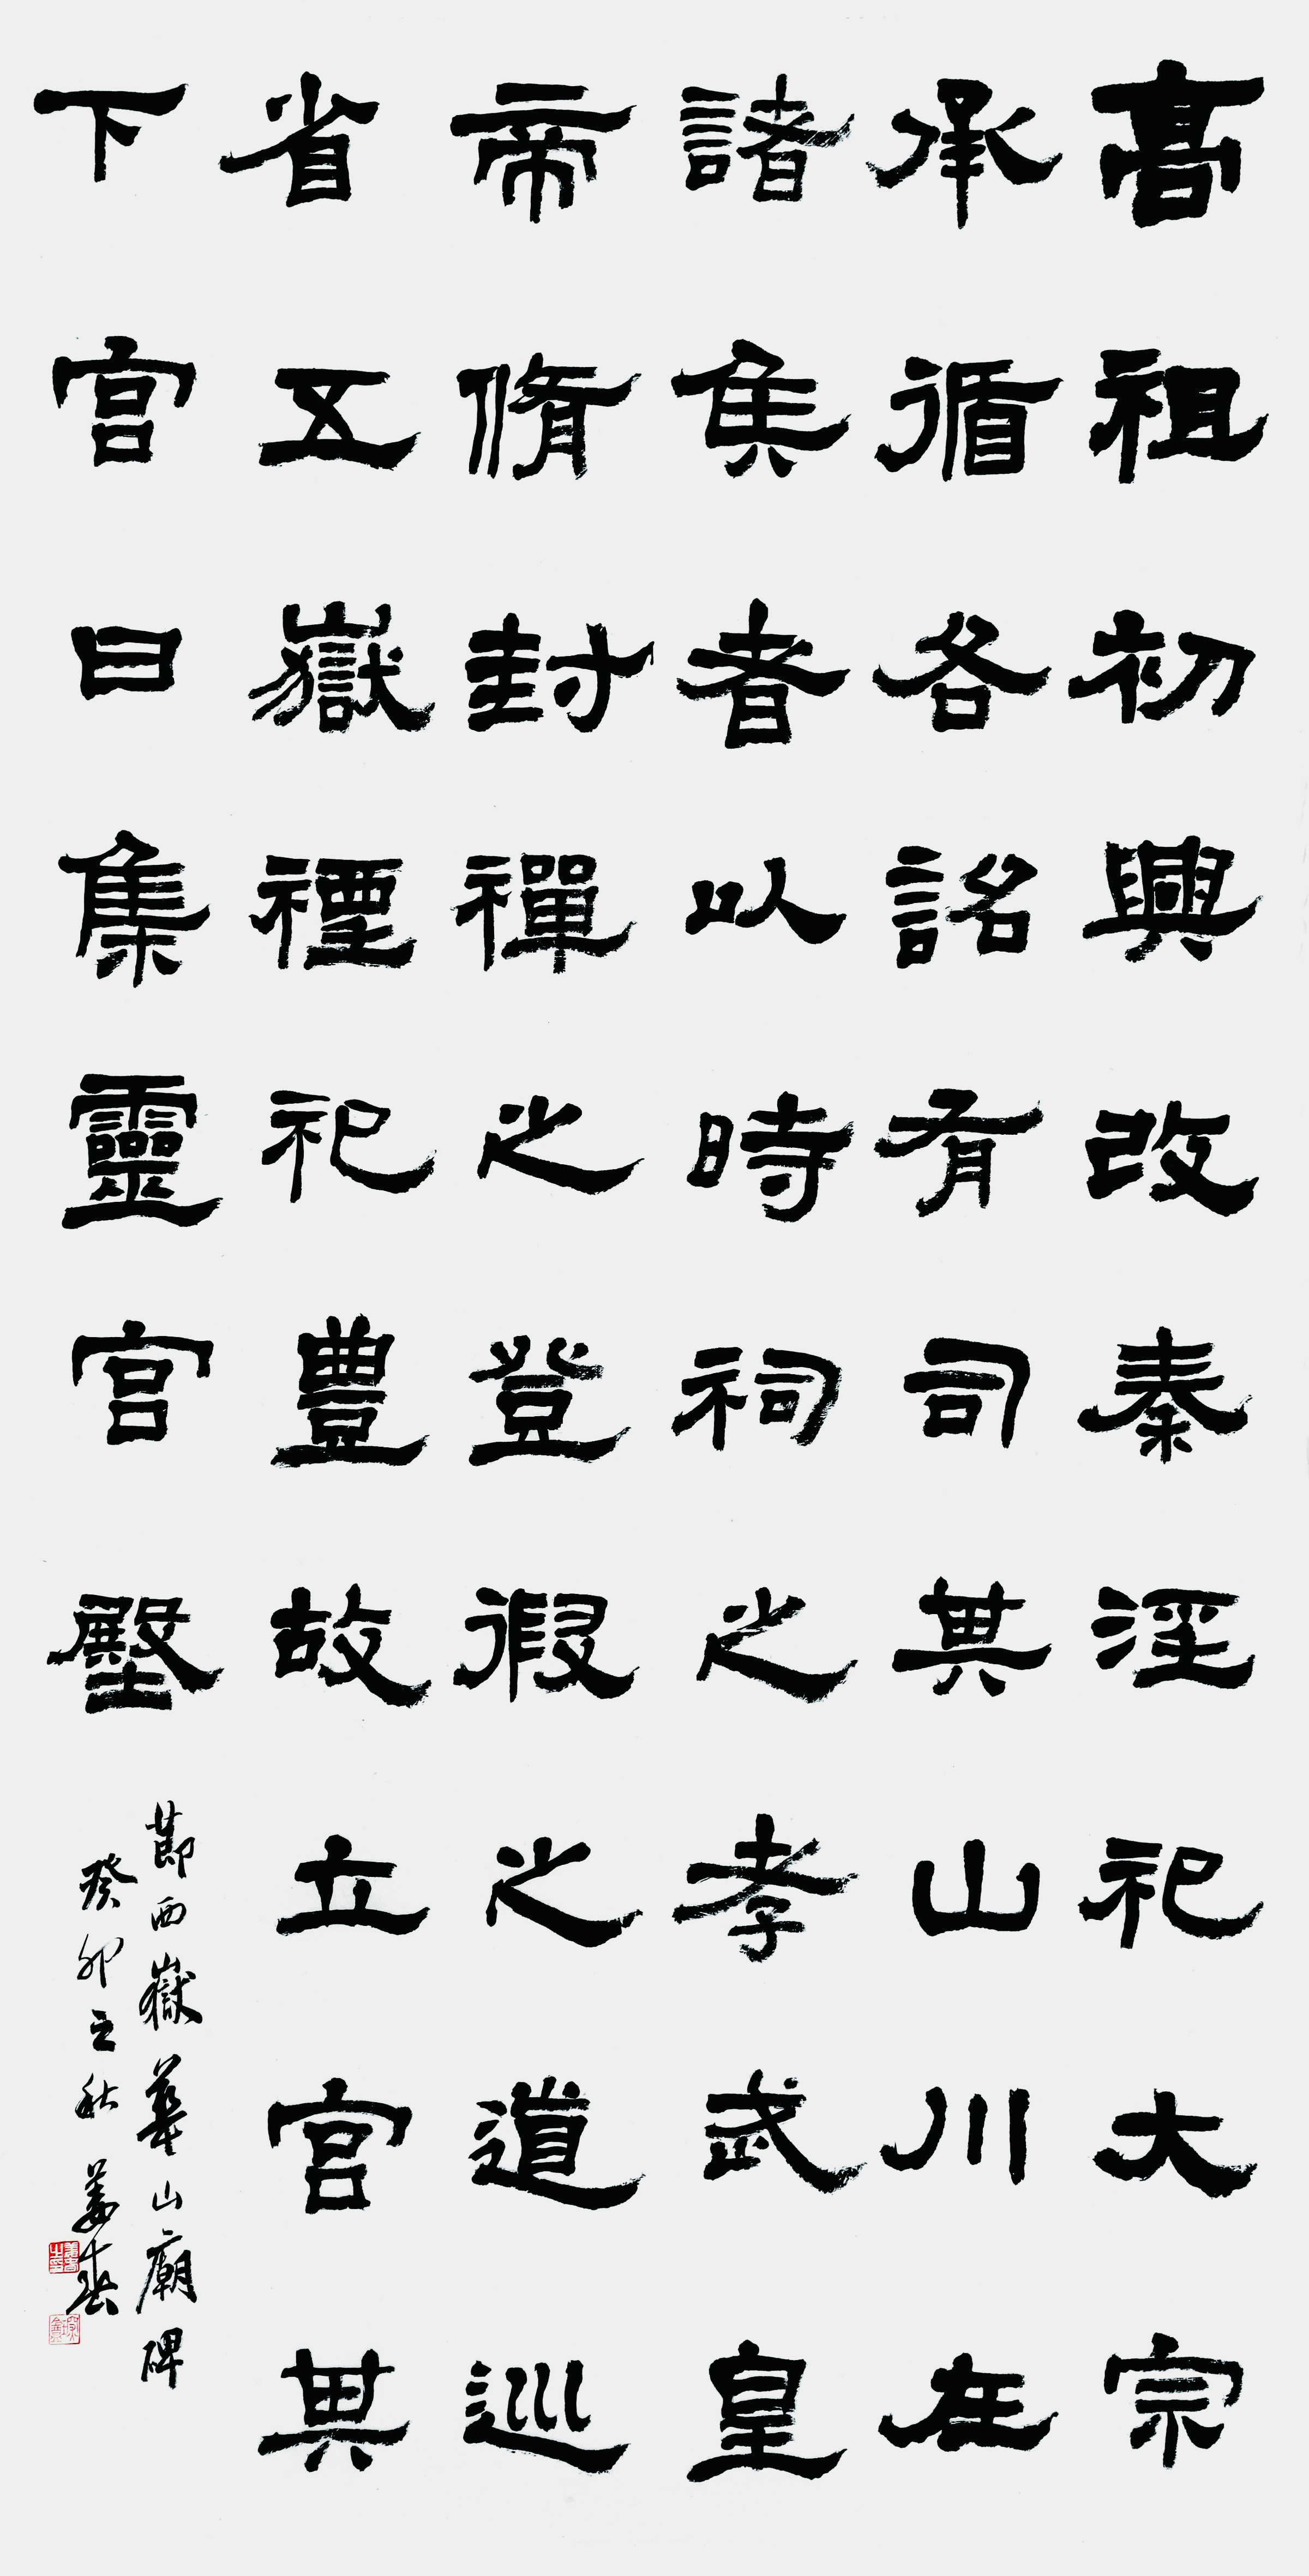 高祖初興改秦淫祀大宗
承循各詔有司其山川在
諸侯者以時祠之孝武皇
帝脩封禪之登徦之道巡
省五嶽禋祀豊故立宮其
下宮曰集靈宮壂
節西嶽華山廟碑
癸卯立秋姜